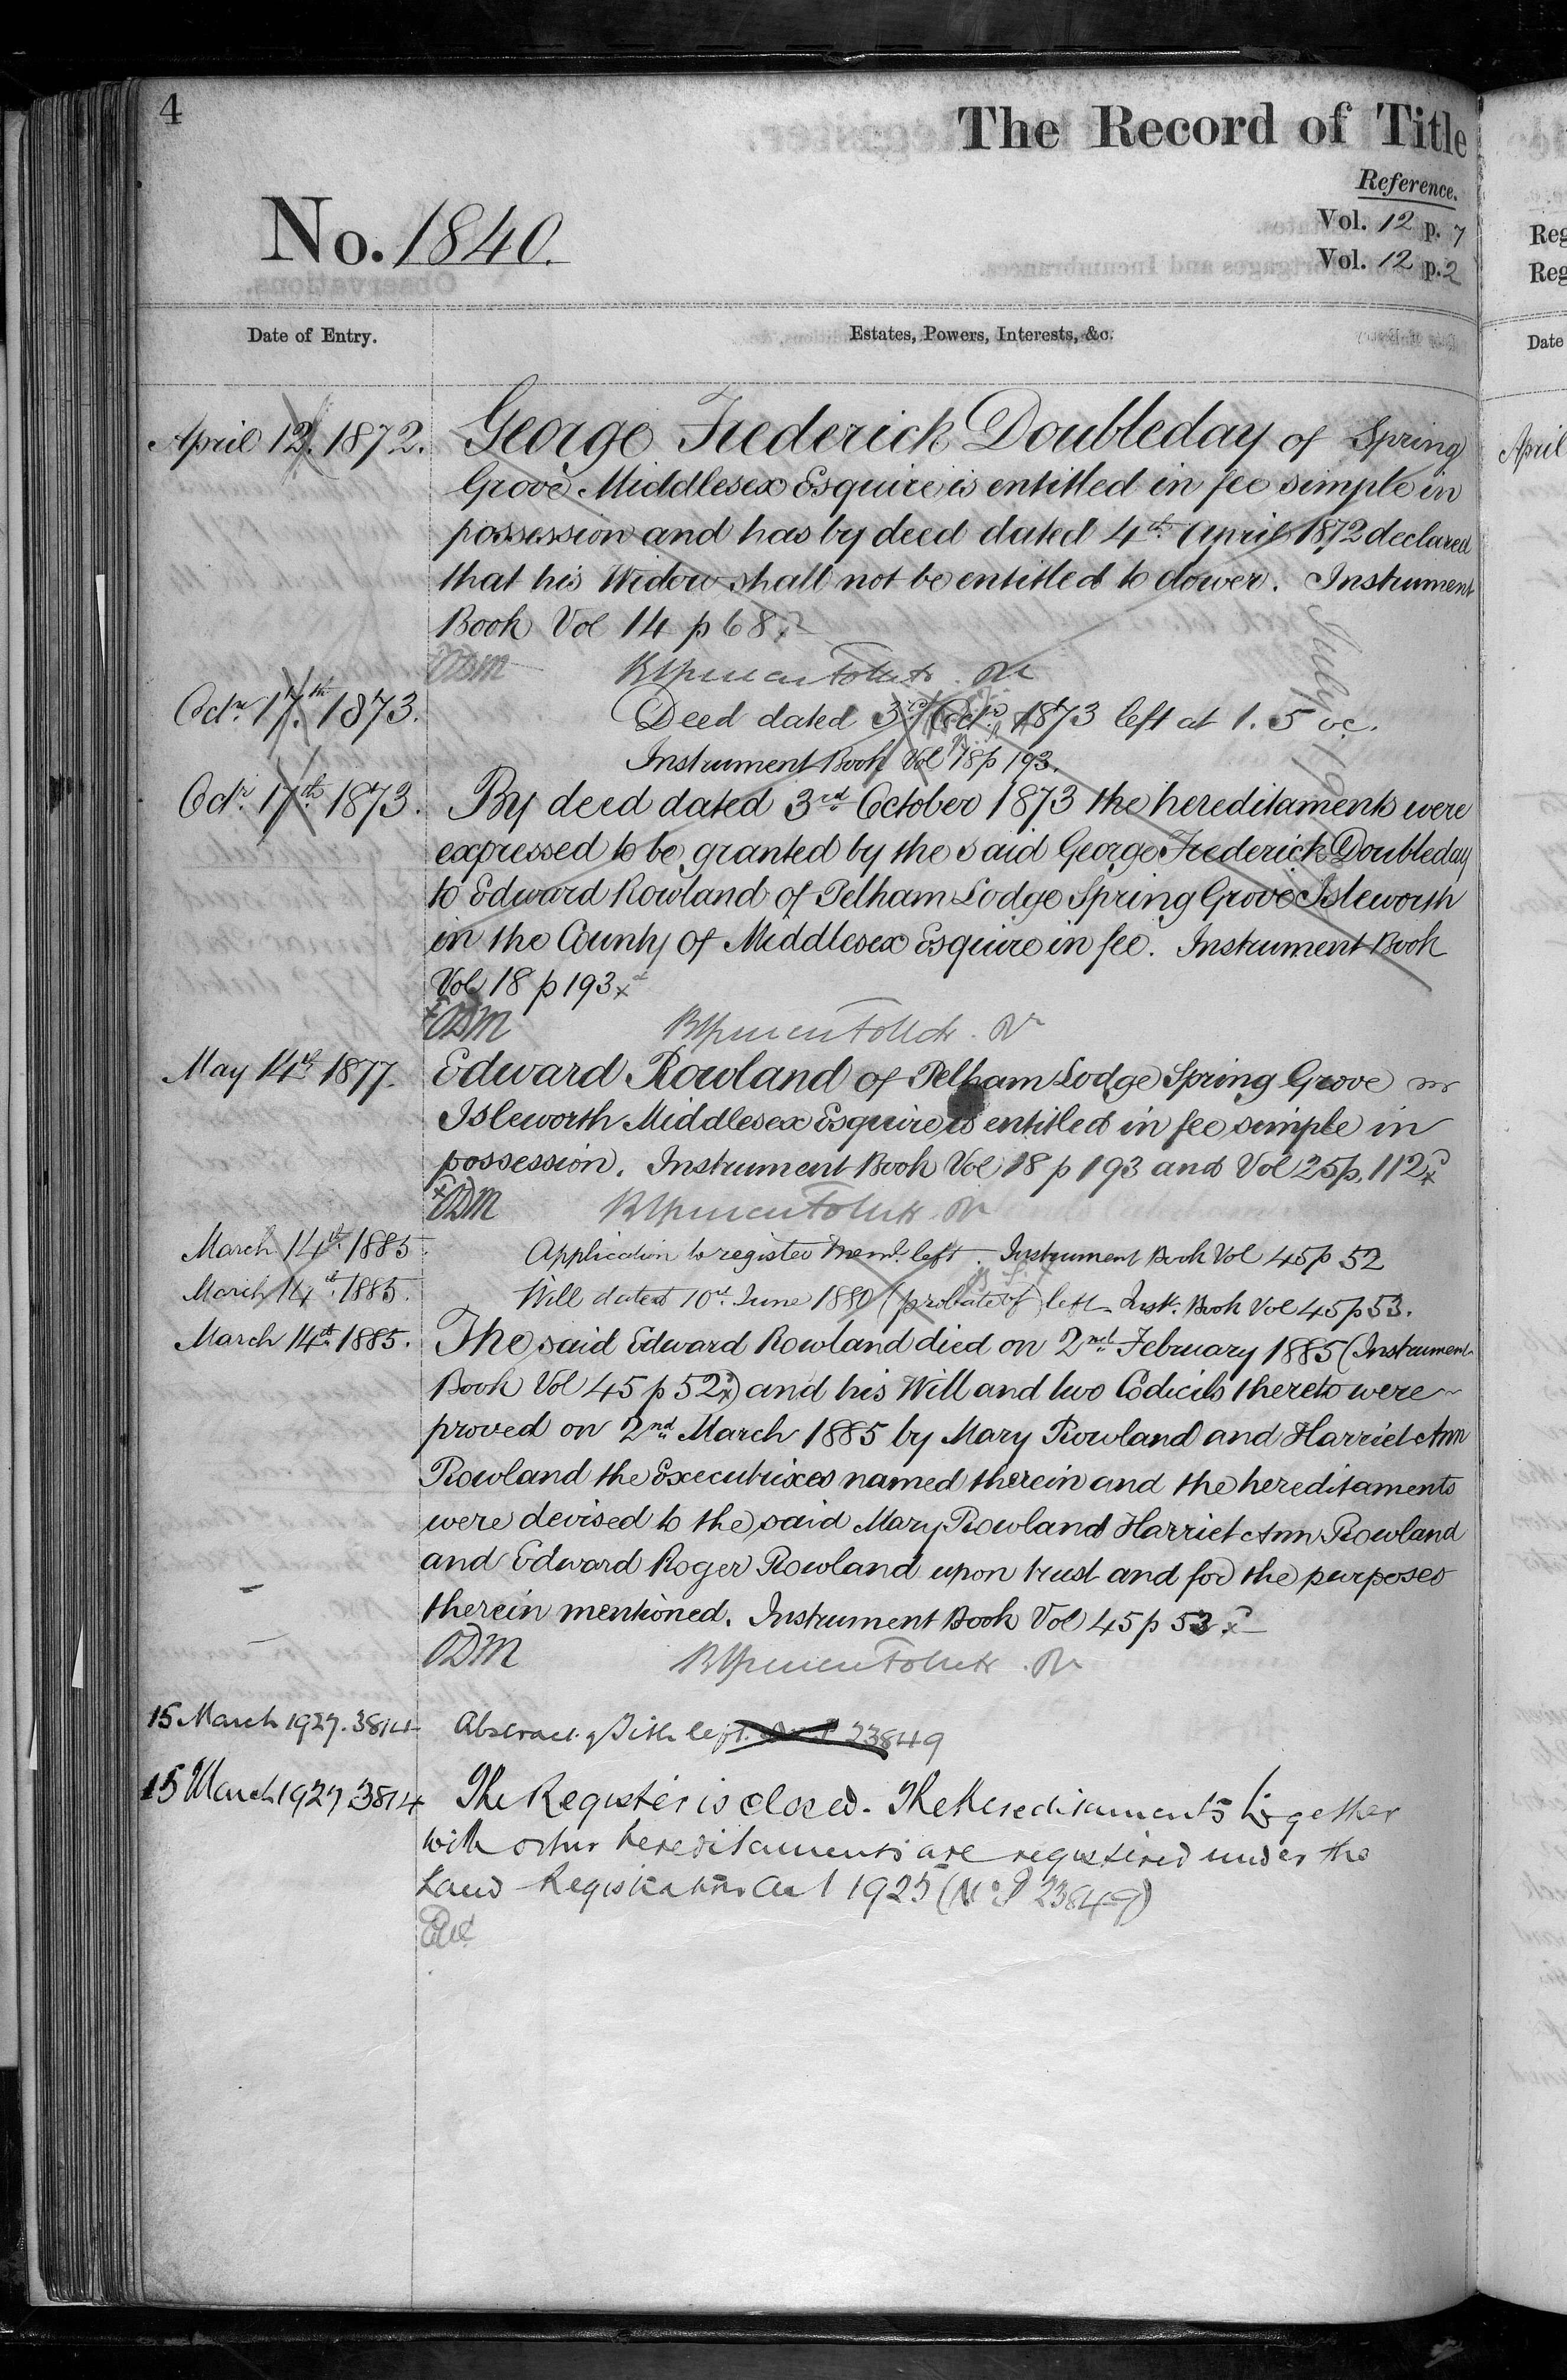 4
The Record of Title
Reference.
No. 1840.
Vol. 12 p. 7
Vol. 12 p. 2
Date of Entry.
Estates, Powers, Interests, &c.
April 12. 1872. George Frederick Doubleday of Spring
Grove Middlesex Esquire is entitled in fee simple in
possession and has by deed dated 4th April 1872 declared
that his Widow shall not be entitled to dower. Instrument
Book Vol 14 p 68.
Octr 17th 1873. Deed dated 3rd Octr 1873 left at 1.5 oc.
Instrument Book Vol 18 p 193.
Octr 17th 1873. By deed dated 3rd October 1873 the hereditaments were
expressed to be granted by the said George Frederick Doubleday
to Edward Rowland of Pelham Lodge Spring Grove Isleworth
in the County of Middlesex Esquire in fee. Instrument Book
Vol 18 p 193
May 14th 1877. Edward Rowland of Pelham Lodge Spring Grove
Isleworth Middlesex Esquire is entitled in fee simple in
possession. Instrument Book Vol 18 p 193 and Vol 25 p. 112
March 14th 1885. Application to register left. Instrument Book Vol 45 p 52
March 14th 1885. Will dated 10th June 1880 (probate of) left Inst. Book Vol 45 p 53.
March 14th 1885. The said Edward Rowland died on 2nd February 1885 (Instrument
Book Vol 45 p 52) and his Will and two Codicils thereto were
proved on 2nd March 1885 by Mary Rowland and Harriet Ann
Rowland the Executrixes named therein and the hereditaments
were devised to the said Mary Rowland Harriet Ann Rowland
and Edward Roger Rowland upon trust and for the purposes
therein mentioned. Instrument Book Vol 45 p 53.
15 March 1927. 3814 Abstract of Title left. 23849
15 March 1927 3814 The Register is closed. The Hereditaments together
with other hereditaments are registered under the
Land Registration Act 1925 (No P 23849)
Reg
Reg
Date
April